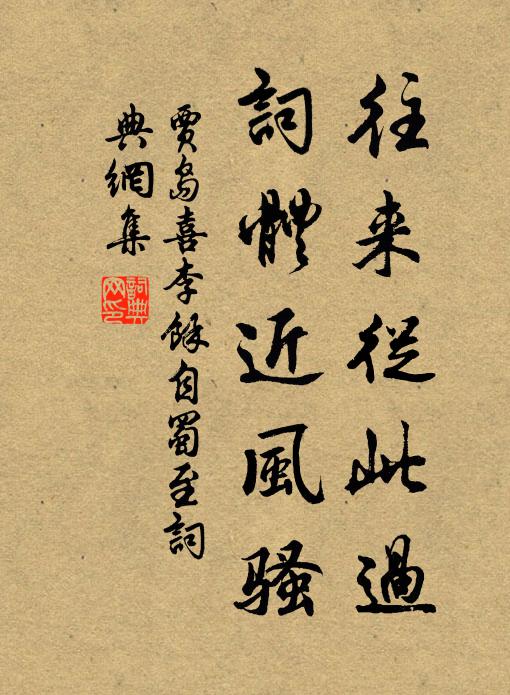 往来從此過
詞體近風騷
賈島喜李餘自蜀至詞
典網集
詞典
网印